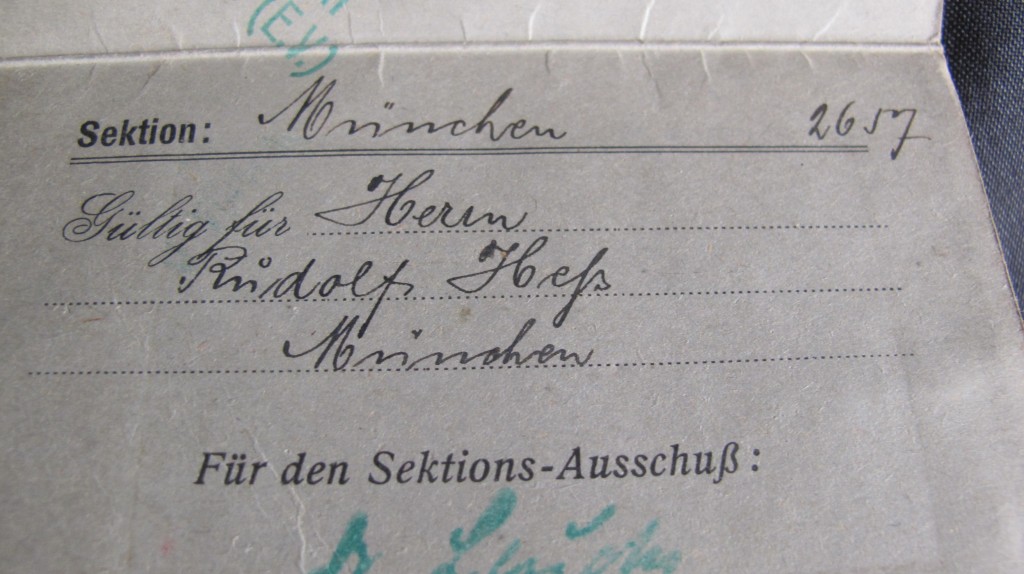 (E.V.)
Sektion: München 2657
Gültig für Herrn
Rudolf Heß
München
Für den Sektions-Ausschuß: